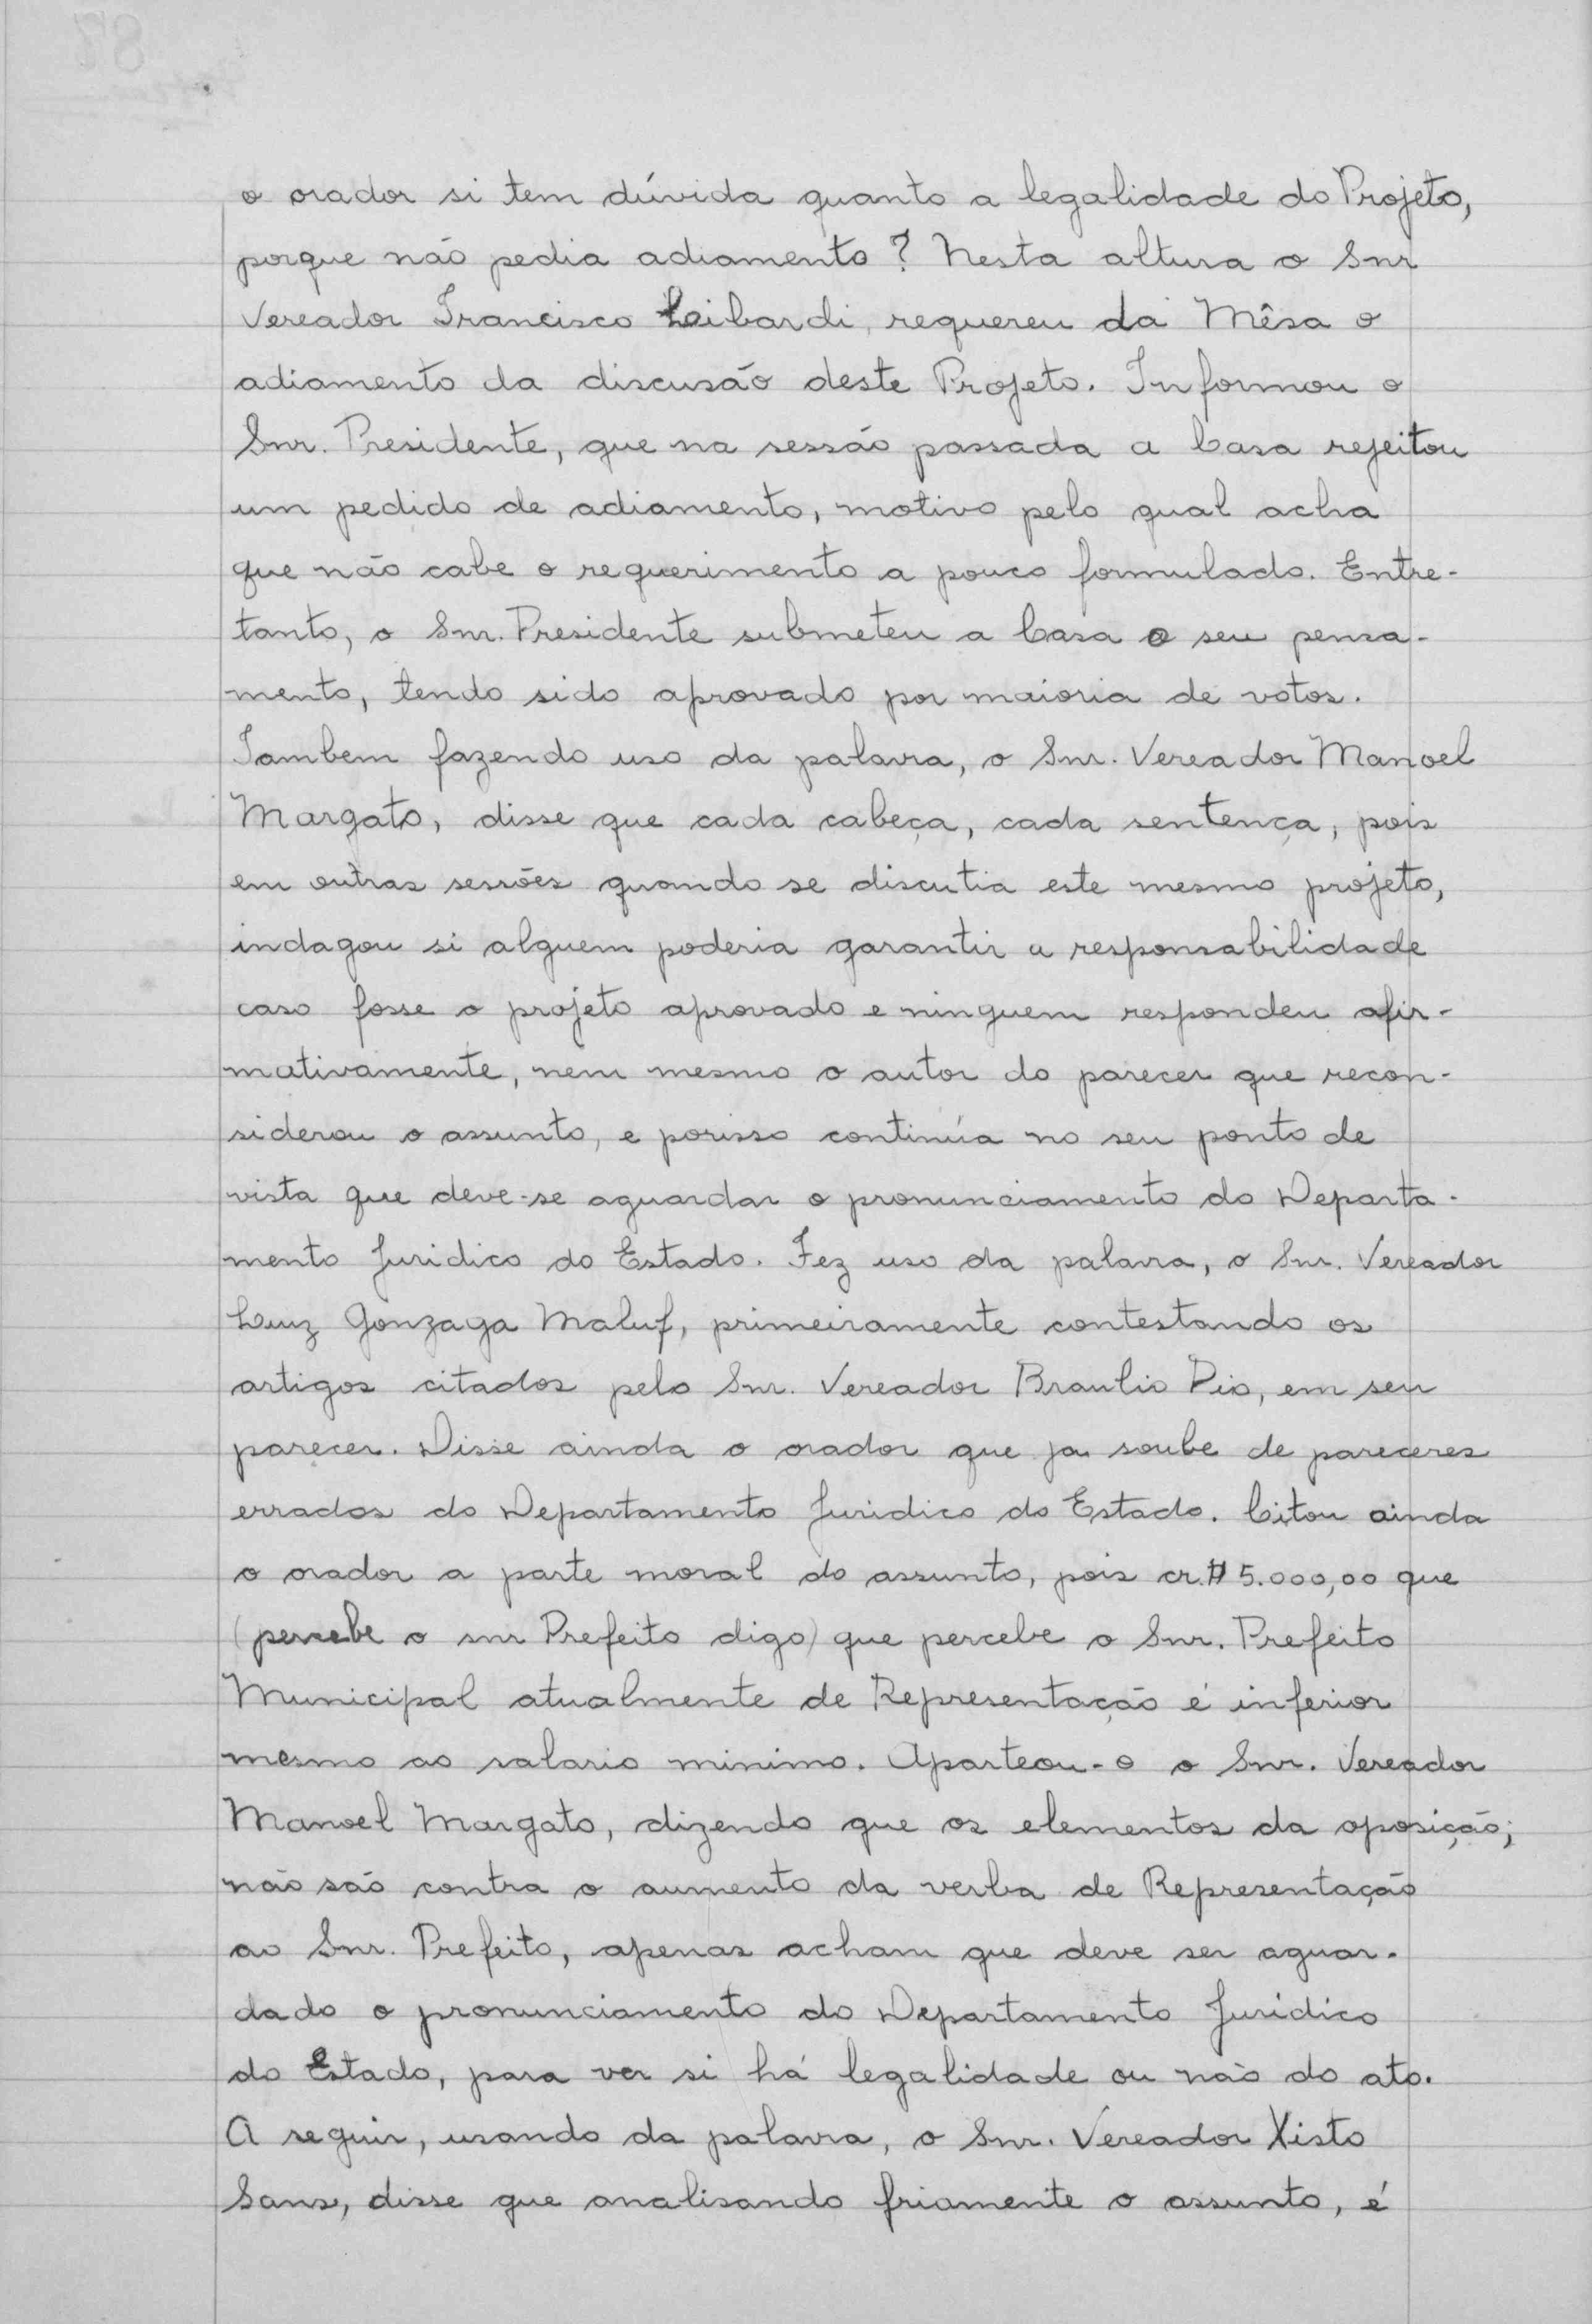 o orador si tem dúvida quanto a legalidade do Projeto,
porque não pedia adiamento? Nesta altura o Snr
Vereador Francisco Leibardi, requereu da Mêsa o
adiamento da discusão deste Projeto. Informou o
Snr. Presidente, que na sessão passada a Casa rejeitou
um pedido de adiamento, motivo pelo qual acha
que não cabe o requerimento a pouco formulado. Entre-
tanto, o Snr. Presidente submeteu a Casa o seu pensa-
mento, tendo sido aprovado por maioria de votos.
Tambem fazendo uso da palavra, o Snr. Vereador Manoel
Margato, disse que cada cabeça, cada sentença, pois
em outras sessões quando se discutia este mesmo projeto,
indagou si alguem poderia garantir a responsabilidade
caso fosse o projeto aprovado e ninguem respondeu afir-
mativamente, nem mesmo o autor do parecer que recon-
siderou o assunto, e porisso continúa no seu ponto de
vista que deve-se aguardar o pronunciamento do Departa-
mento Juridico do Estado. Fez uso da palavra, o Snr. Vereador
Luiz Gonzaga Maluf, primeiramente contestando os
artigos citados pelo Snr. Vereador Braulio Pio, em seu
parecer. Disse ainda o orador que ja soube de pareceres
errados do Departamento Juridico do Estado. Citou ainda
o orador a parte moral do assunto, pois cr.$ 5.000,00 que
(percebe o snr Prefeito digo) que percebe o Snr. Prefeito
Municipal atualmente de Representação é inferior
mesmo ao salario minimo. Aparteou-o o Snr. Vereador
Manoel Margato, dizendo que os elementos da oposição;
não são contra o aumento da verba de Representação
ao Snr. Prefeito, apenas acham que deve ser aguar-
dado o pronunciamento do Departamento Jurídico
do Estado, para ver si há legalidade ou não do ato.
A seguir, usando da palavra, o Snr. Vereador Xisto
Sans, disse que analisando friamente o assunto, é